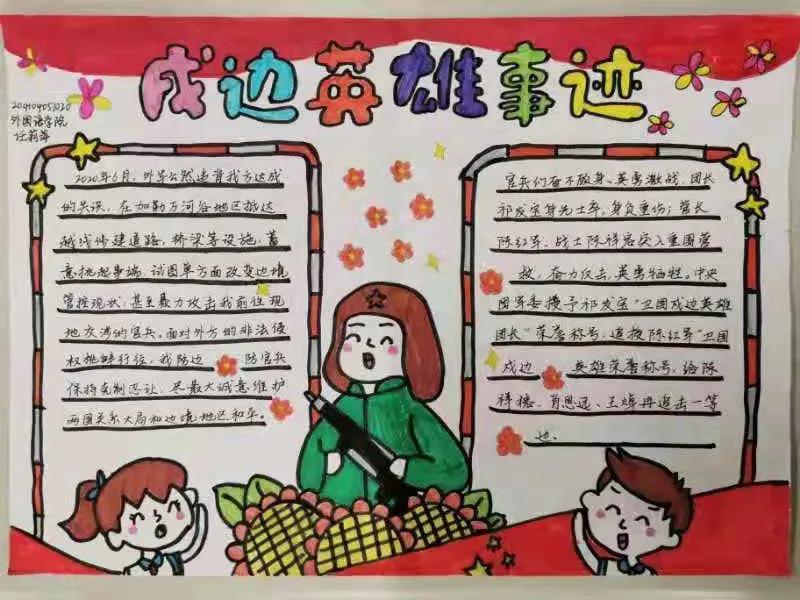 戍边英雄事迹
外国语学院
任莉萍
2020年6月，外军公然违背我方达成
的共识，在加勒万河谷地区抵达
越线修建道路，桥梁等设施，蓄
意挑起事端，试图单方面改变边境
管控现状，甚至暴力攻击我前往现
地交涉的官兵。面对外方的非法侵
权挑衅行径，我防边 防官兵
保持克制忍让，尽最大诚意维护
两国关系大局和边境地区和平。
官兵们奋不顾身、英勇激战，团长
祁发宝身先士卒，身负重伤；营长
陈红军、战士陈祥榕突入重围营
救，奋力反击，英勇牺牲。中央
军委授予祁发宝"卫国戍边英雄
团长"荣誉称号，追授陈红军"卫国
戍边 英雄荣誉称号，给陈
祥榕、肖思远、王焯冉追击一等
也.